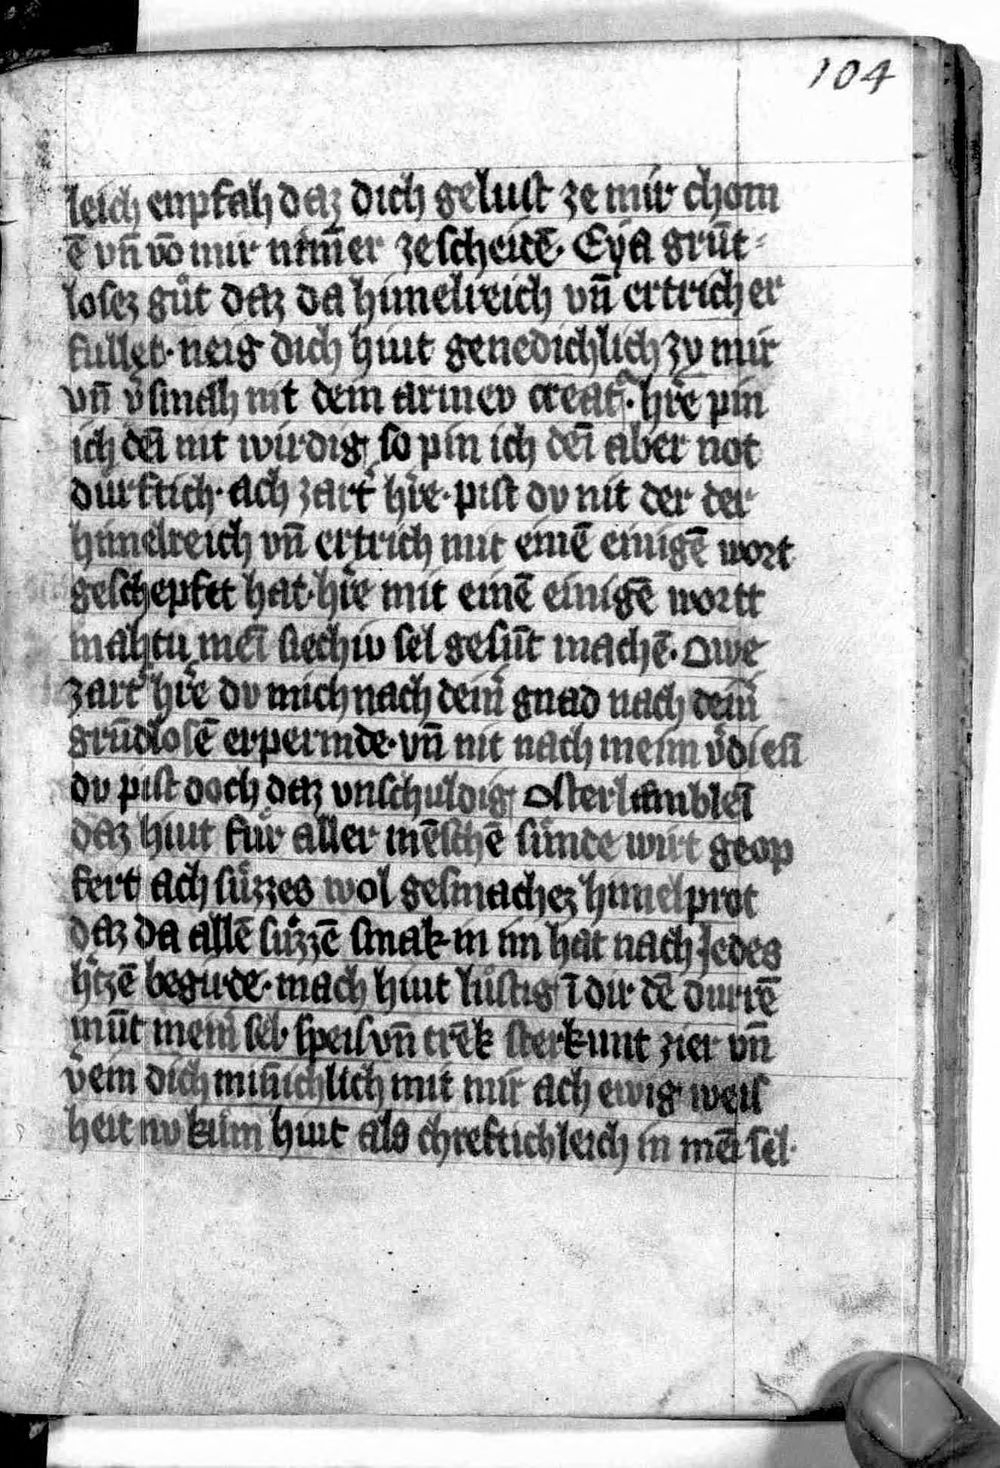 104
leich enpfah daz dich gelust ze mir chom
ē vn̄ vō mir nim̄er ze scheidē· Eya grūt⸗
losez gůt daz da himelreich vn̄ ertrich er
fullet· neig dich hiut genedichlich zv mir
vn̄ v̓smah nit dem armev creat᷑· hr̄e pin
ich dei̅ nit wirdig so pin ich dei̅ aber not
durftich· ach zart᷑ hr̄e· pist dv nit der der
himelreich vn̄ ertrich mit einē einigē wort
geschepftt hat· hr̄e mit einē einigē wortt
mahtu mei̅ siechiv sel gesūt machē· Owe
zart᷑ hr̄e dv mich nach deim̓ gnad nach deim̓
grūdlosē erpermde· vn̄ nit nach meim v̓diesī
dv pist doch daz vnschuldig Osterlamblei̅
daz hiut fůr aller mēschē sůnde wirt geop
fert ach sůzzes wol gesmachez himelprot
daz da allē sůzzē smak in im hat nach Jedes
h᷑tzē begirde· mach hiut lůstig ī dir dē durrē
mūt meinr̓ sel· speis vn̄ trēk sterk unt zier vn̄
v̓ein dich min̄ichlich mit mir ach ewig weis
heit nv kům hiut als chreftichleich in mei̅ sel·